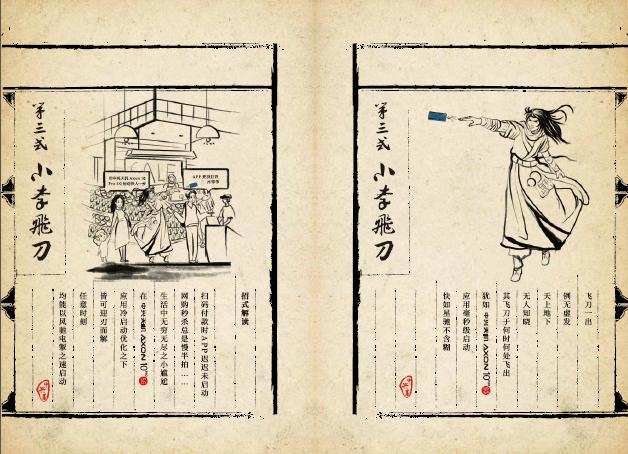 第三式
小李飛刀
飞刀一出
例无虚发
天上地下
无人知晓
其飞刀于何时何处飞出
犹如 中兴天机 AXON 10 Pro 5G
应用毫秒级启动
快如星驰不含糊
第三式
小李飛刀
APP更快打开
招式解读
扫码付款时APP迟迟未启动
网购秒杀总是慢半拍……
生活中无穷无尽之小尴尬
在 中兴天机 AXON 10 Pro 5G
应用冷启动优化之下
皆可迎刃而解
任意时刻
均能以风驰电掣之速启动